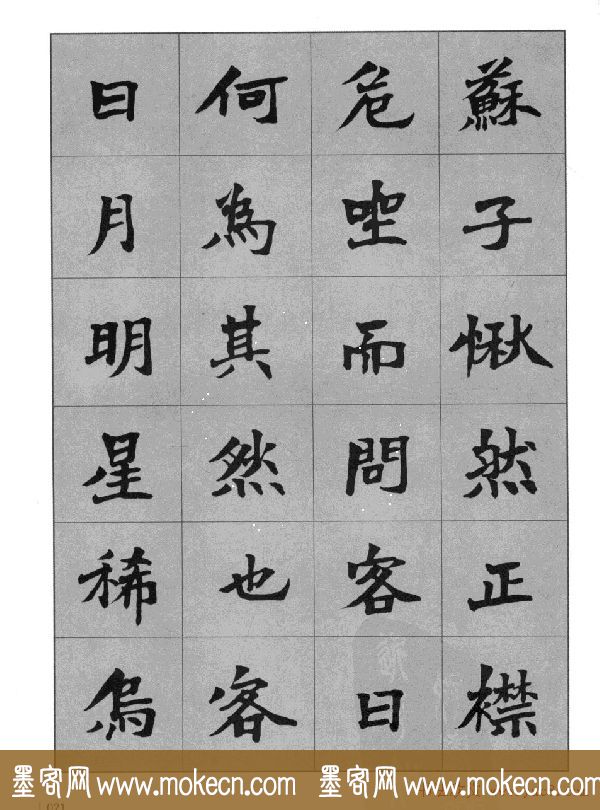 蘇子愀然正襟
危坐而問客曰
何為其然也客
曰月明星稀烏
墨客网 www.mokecn.com 墨客网 www.mokecn.com
021